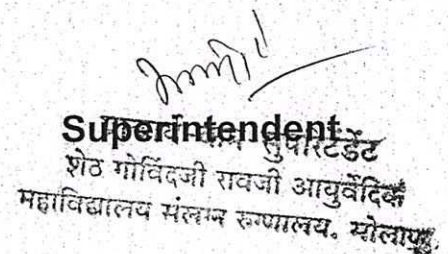 Superintendent
सुपरिटेंडेंट
शेठ गोविंदजी रावजी आयुर्वेदिक
महाविद्यालय संलग्न रुग्णालय. सोलापूर.